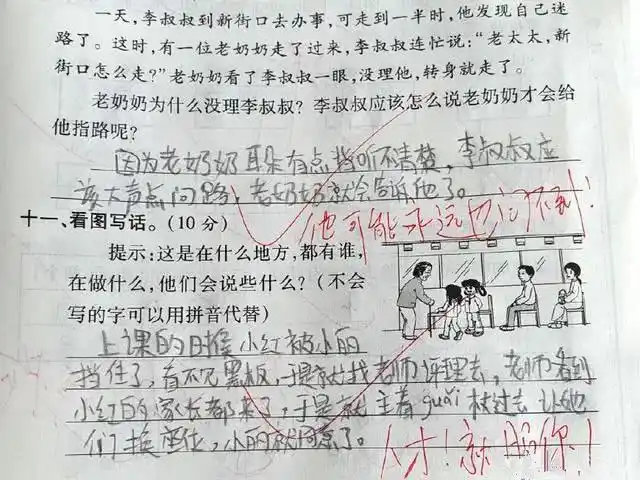 一天,李叔叔到新街口去办事,可走到一半时,他发现自己迷
路了。这时,有一位老奶奶走了过来,李叔叔连忙说:“老太太,新
街口怎么走?”老奶奶看了李叔叔一眼,没理他,转身就走了。
老奶奶为什么没理李叔叔?李叔叔应该怎么说老奶奶才会给
他指路呢?
因为老奶奶耳朵有点听不清楚,李叔叔应
该大声点问路,老奶奶就会告诉他了。
他可能永远也问不到!
十一、看图写话。(10分)
提示:这是在什么地方,都有谁,
在做什么,他们会说些什么?(不会
写的字可以用拼音代替)
上课的时候小红被小丽
挡住了,看不见黑板,于是就找老师评理去,老师看到
小红的家长都来了,于是就主着guai杖过去让她
们换座位,小丽就同意了。
人才!就服你!